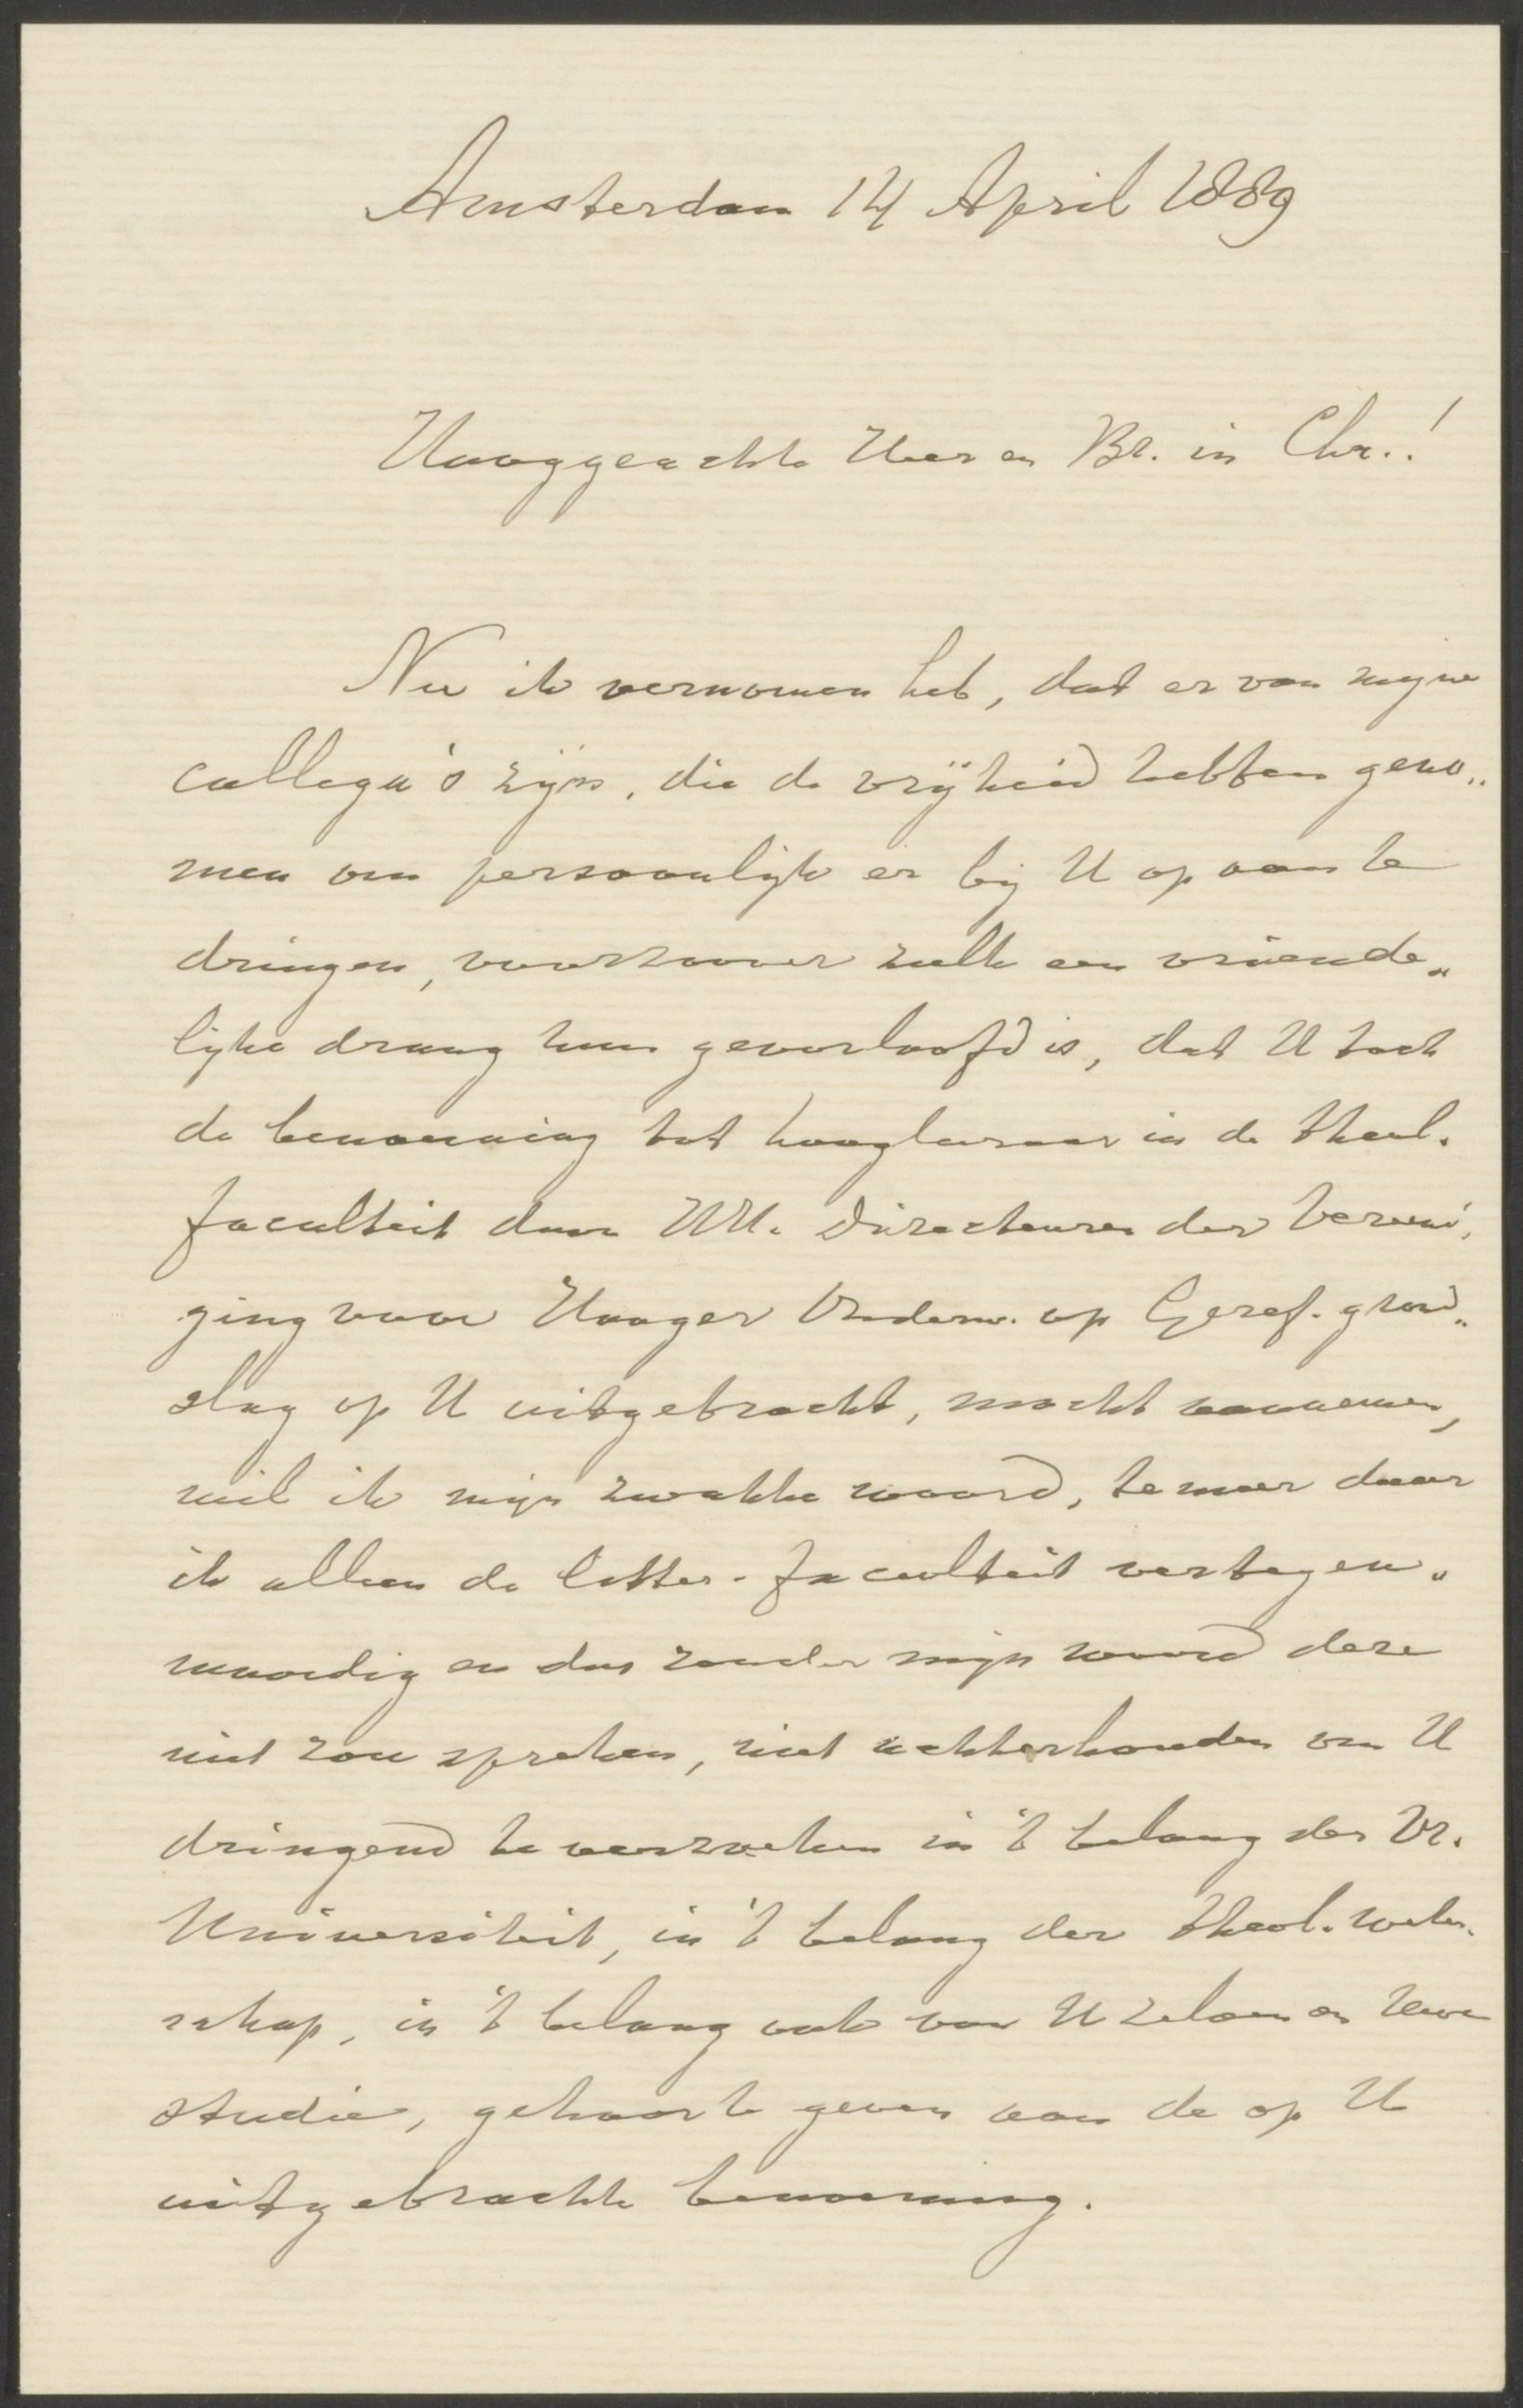 Amsterdam 14 April 1889
Hooggeachte Heer en Br. in Chr.!
Nu ik vernomen heb, dat er van mijne
collega's zijn, die de vrijheid hebben geno„
men om persoonlijk er bij U op aan te
dringen, voorzoover zulk een vriende„
lijke drang hun geoorloofd is, dat U toch
de benoeming tot hoogleeraar in de theol.
faculteit door HH. Directeuren der Vereeni„
ging voor Hooger Onderw. op Geref. grond„
slag op U uitgebracht, mocht aannemen,
wil ik mijn zwakke woord, te meer daar
ik alleen de letter-faculteit vertegen„
woordig en dus zonder mijn woord deze
niet zou spreken, niet achterhouden om U
dringend te verzoeken in 't belang der Vr.
Universiteit, in 't belang der theol. weten„
schap, in 't belang ook van U zelven en Uwe
studie, gehoor te geven aan de op U
uitgebrachte benoeming.